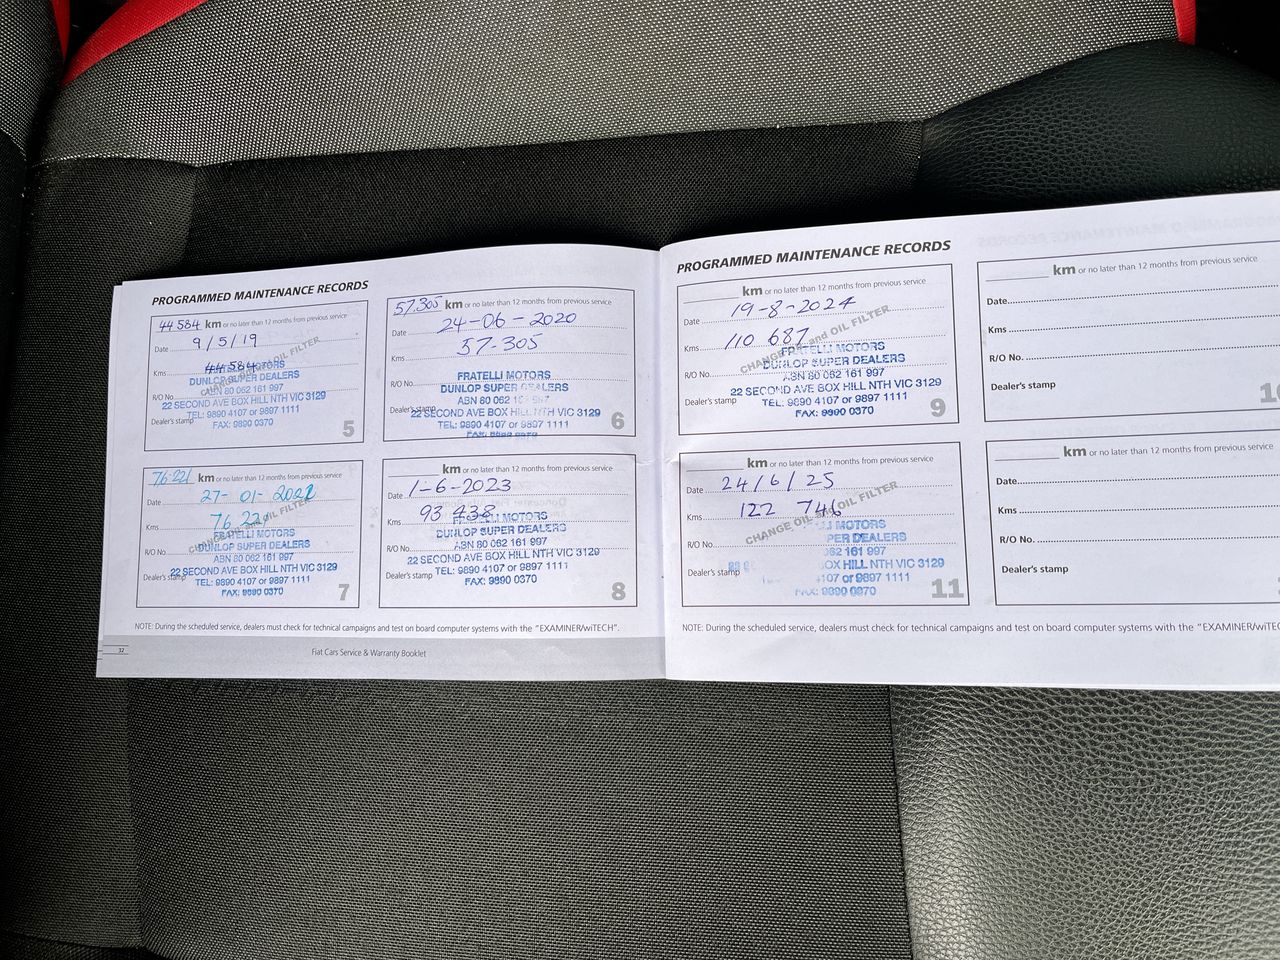 PROGRAMMED MAINTENANCE RECORDS
44 584 km or no later than 12 months from previous service
Date 9/5/19
Kms 44 584
CHANGE OIL and OIL FILTER
FRATELLI MOTORS
DUNLOP SUPER DEALERS
R/O No. ABN 80 062 161 997
22 SECOND AVE BOX HILL NTH VIC 3129
Dealer's stamp TEL: 9890 4107 or 9897 1111
FAX: 9890 0370
5
57.305 km or no later than 12 months from previous service
Date 24-06-2020
Kms 57.305
R/O No. FRATELLI MOTORS
DUNLOP SUPER DEALERS
ABN 80 062
Dealer's stamp
22 SECOND AVE BOX HILL NTH VIC 3129
TEL: 9890 4107 or 9897 1111
FAX: 9890 0370
6
76.221 km or no later than 12 months from previous service
Date 27-01-2022
Kms 76 221
CHANGE OIL and OIL FILTER
FRATELLI MOTORS
R/O No. DUNLOP SUPER DEALERS
ABN 80 062 161 997
Dealer's stamp 22 SECOND AVE BOX HILL NTH VIC 3129
TEL: 9890 4107 or 9897 1111
FAX: 9890 0370
7
km or no later than 12 months from previous service
Date 1-6-2023
Kms 93 438
FRATELLI MOTORS
DUNLOP SUPER DEALERS
R/O No. ABN 80 062 161 997
22 SECOND AVE BOX HILL NTH VIC 3129
Dealer's stamp TEL: 9890 4107 or 9897 1111
FAX: 9890 0370
8
NOTE: During the scheduled service, dealers must check for technical campaigns and test on board computer systems with the "EXAMINER/wiTECH".
32
Fiat Cars Service & Warranty Booklet
PROGRAMMED MAINTENANCE RECORDS
km or no later than 12 months from previous service
Date 19-8-2024
Kms 110 687
CHANGE OIL and OIL FILTER
FRATELLI MOTORS
DUNLOP SUPER DEALERS
R/O No. ABN 80 062 161 997
22 SECOND AVE BOX HILL NTH VIC 3129
Dealer's stamp TEL: 9890 4107 or 9897 1111
FAX: 9890 0370
9
km or no later than 12 months from previous service
Date
Kms
R/O No.
Dealer's stamp
10
km or no later than 12 months from previous service
Date 24/6/25
Kms 122 746
CHANGE OIL and OIL FILTER
MOTORS
R/O No. PER DEALERS
062 161 997
Dealer's stamp OX HILL NTH VIC 3129
4107 or 9897 1111
FAX: 9890 0370
11
km or no later than 12 months from previous service
Date
Kms
R/O No.
Dealer's stamp
NOTE: During the scheduled service, dealers must check for technical campaigns and test on board computer systems with the "EXAMINER/wiTEC